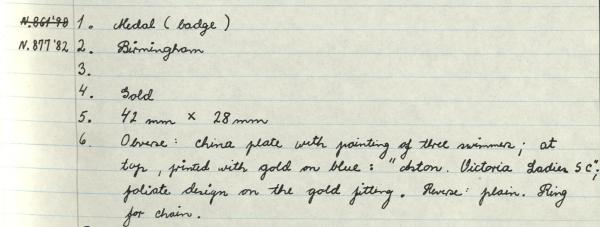 N.861'98 1. Medal (badge)
N.877'82 2. Birmingham
3.
4. Gold
5. 42 mm × 28 mm
6 Obverse: china plate with painting of three swimmers; at
top, printed with gold on blue: "Aston. Victoria Ladies S C";
foliate design on the gold fitting. Reverse: plain. Ring
for chain.